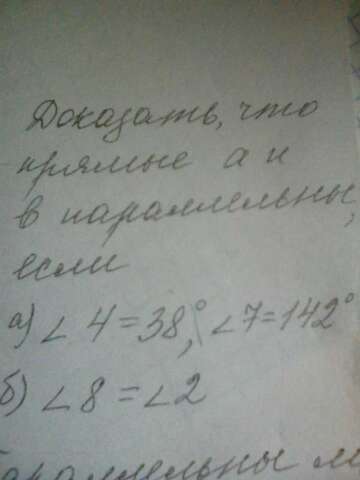 Доказать, что
прямые а и
в параллельны,
если
а) ∠4=38°, ∠7=142°
б) ∠8=∠2
параллельны